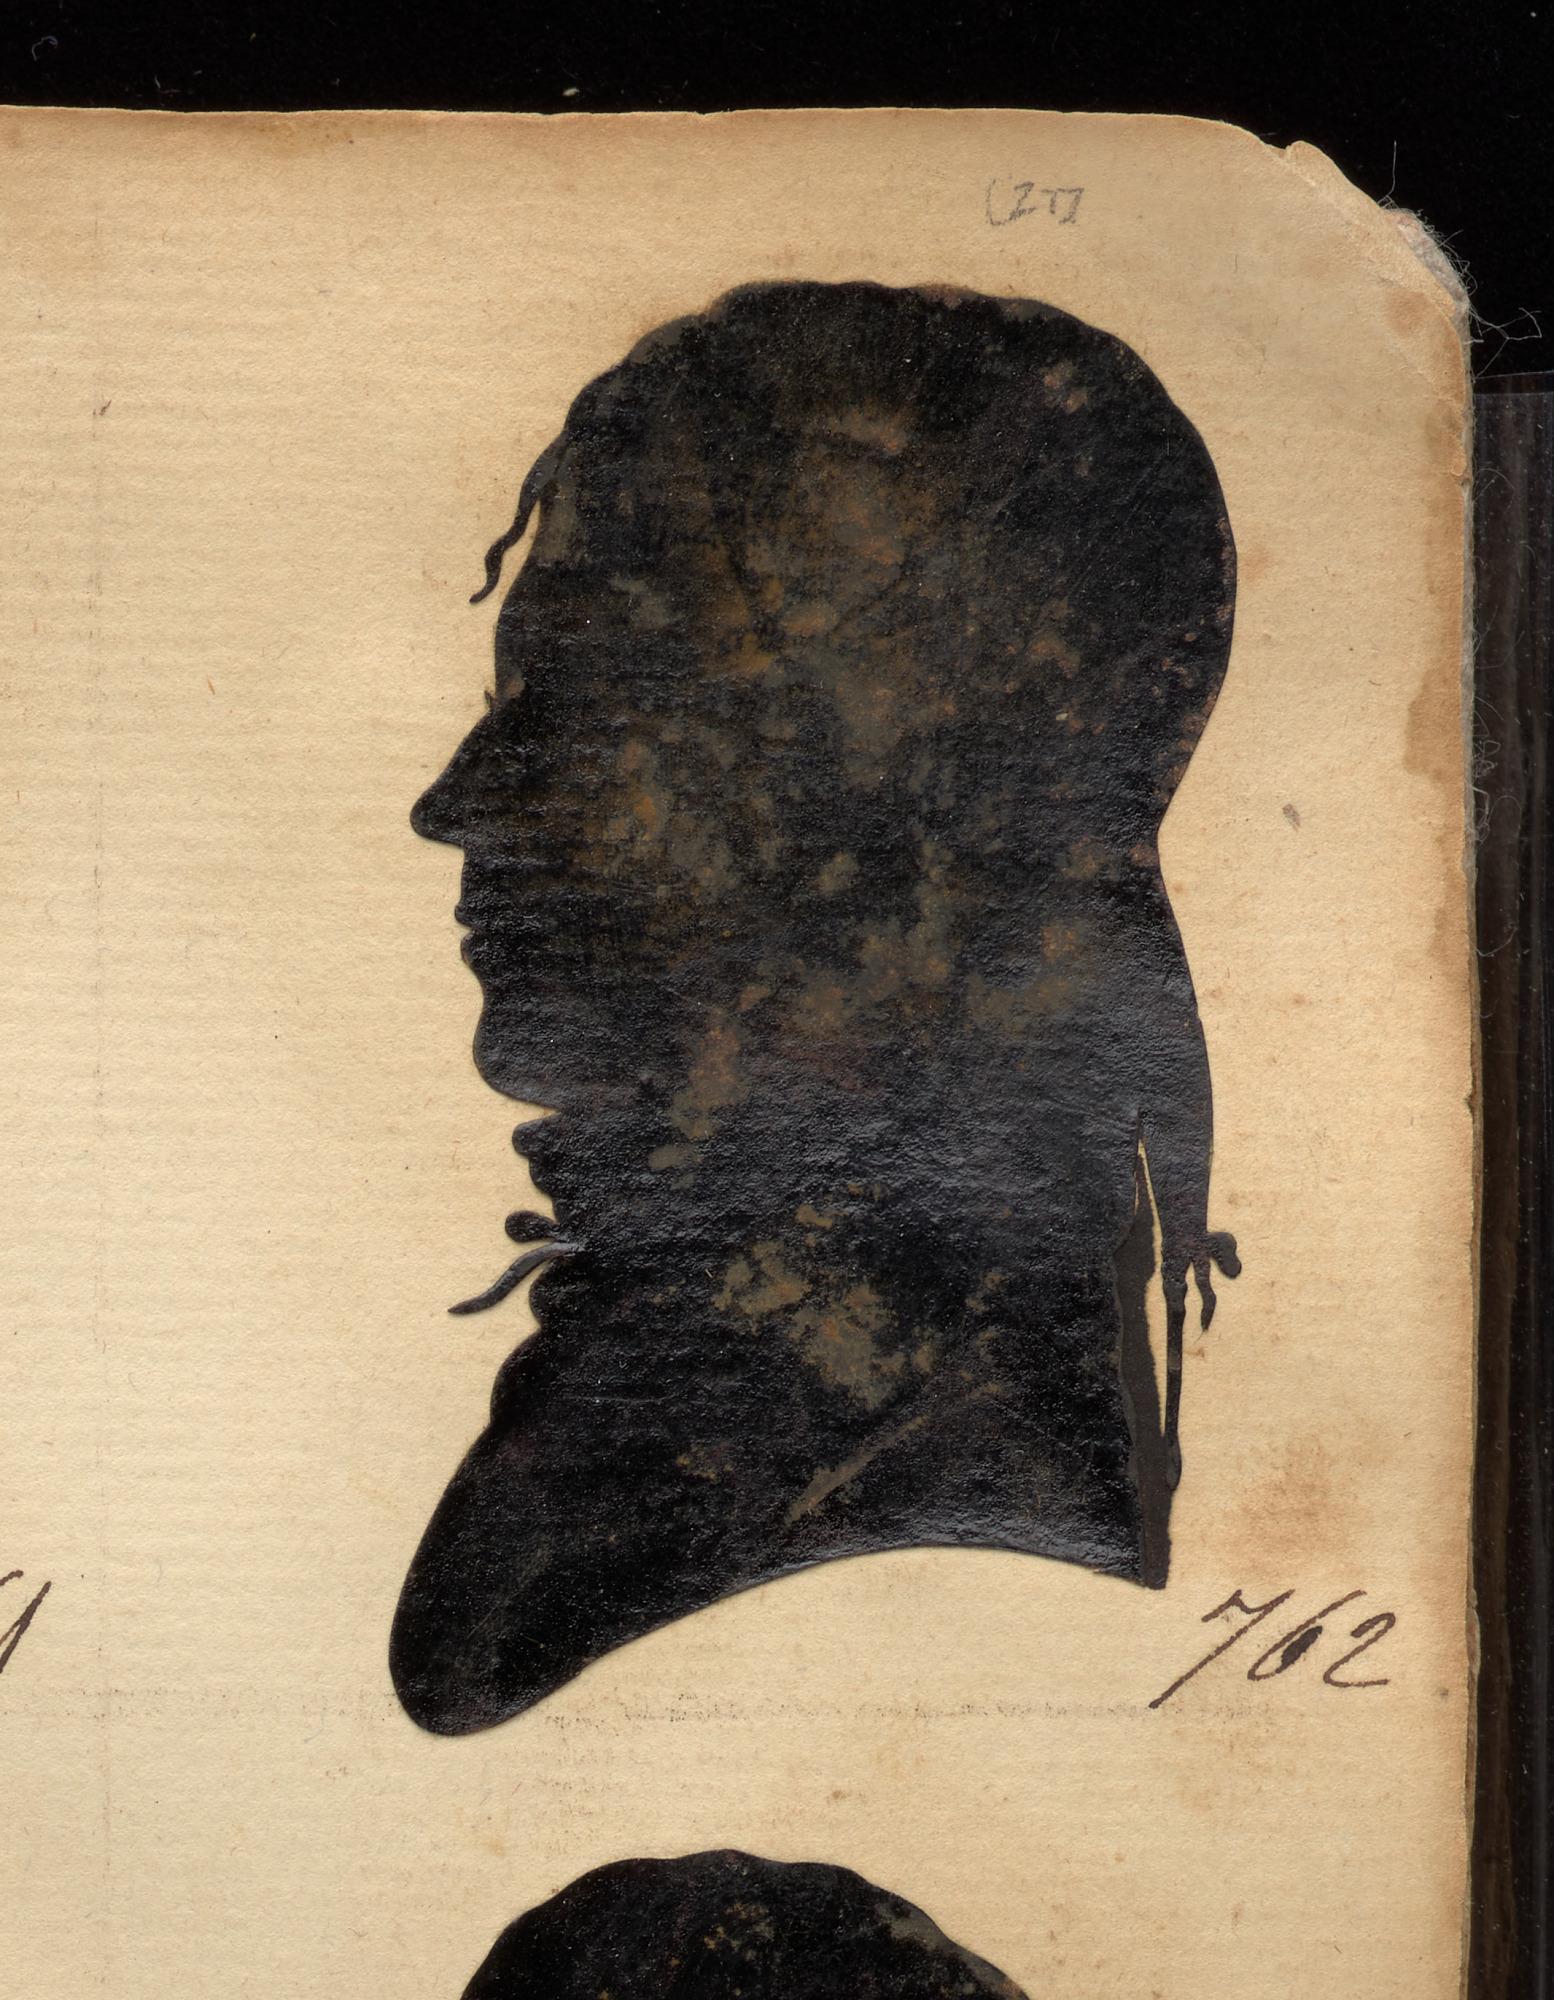 [27]
762